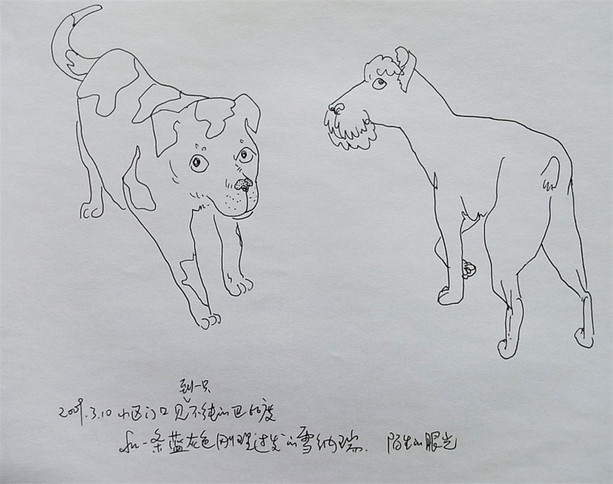 到一只
2009.3.10 小区门口见不纯的巴吉度
和一条蓝灰色刚理过发的雪纳瑞. 陌生的眼光